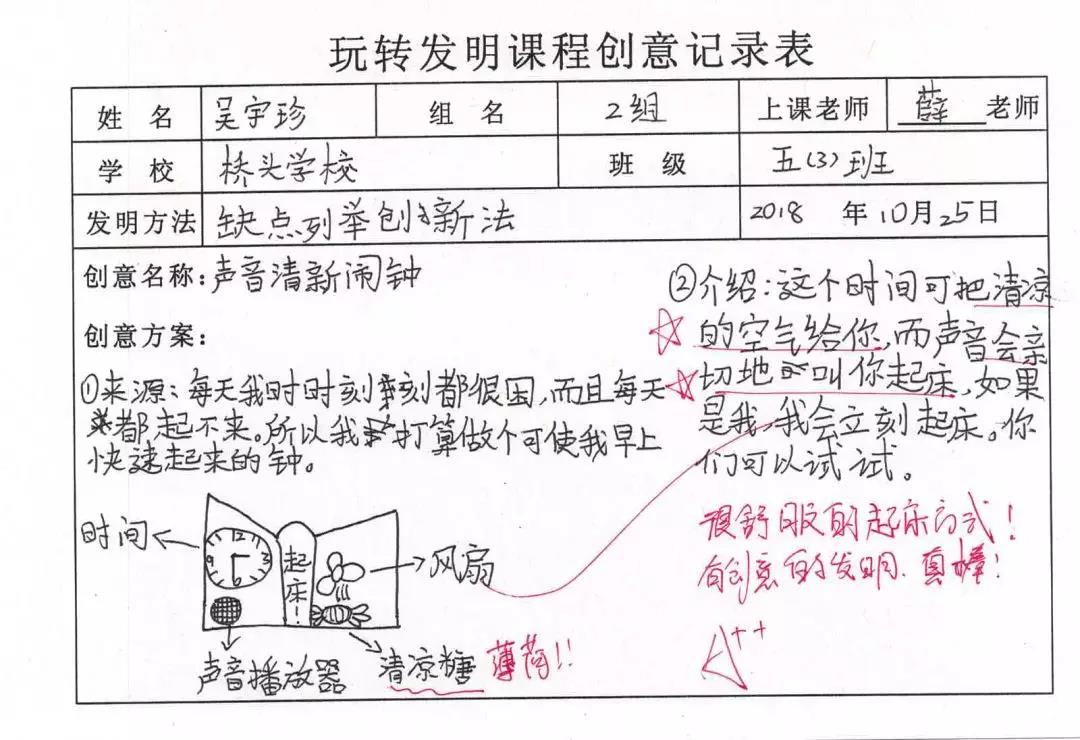 玩转发明课程创意记录表
姓 名 吴宇珍 组 名 2组 上课老师 薛 老师
学 校 桥头学校 班 级 五(3)班
发明方法 缺点列举创新法 2018 年10月25日
创意名称:声音清新闹钟
创意方案:
①来源:每天我时时刻刻都很困,而且每天
都起不来。所以我打算做个可使我早上
快速起来的钟。
时间
12
3
6
9
起床!
风扇
声音播放器
清凉糖
薄荷!!
②介绍:这个时间可把清凉
的空气给你,而声音会亲
切地叫你起床,如果
是我,我会立刻起床。你
们可以试试。
很舒服的起床方式!
有创意的发明.真棒!
A++